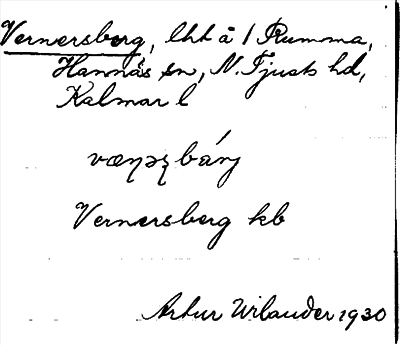 Vernersberg, lht å 1 Rumma,
Hannäs sn, N. Tjusts hd,
Kalmar l
Vernersberg kb
Artur Wilander 1930